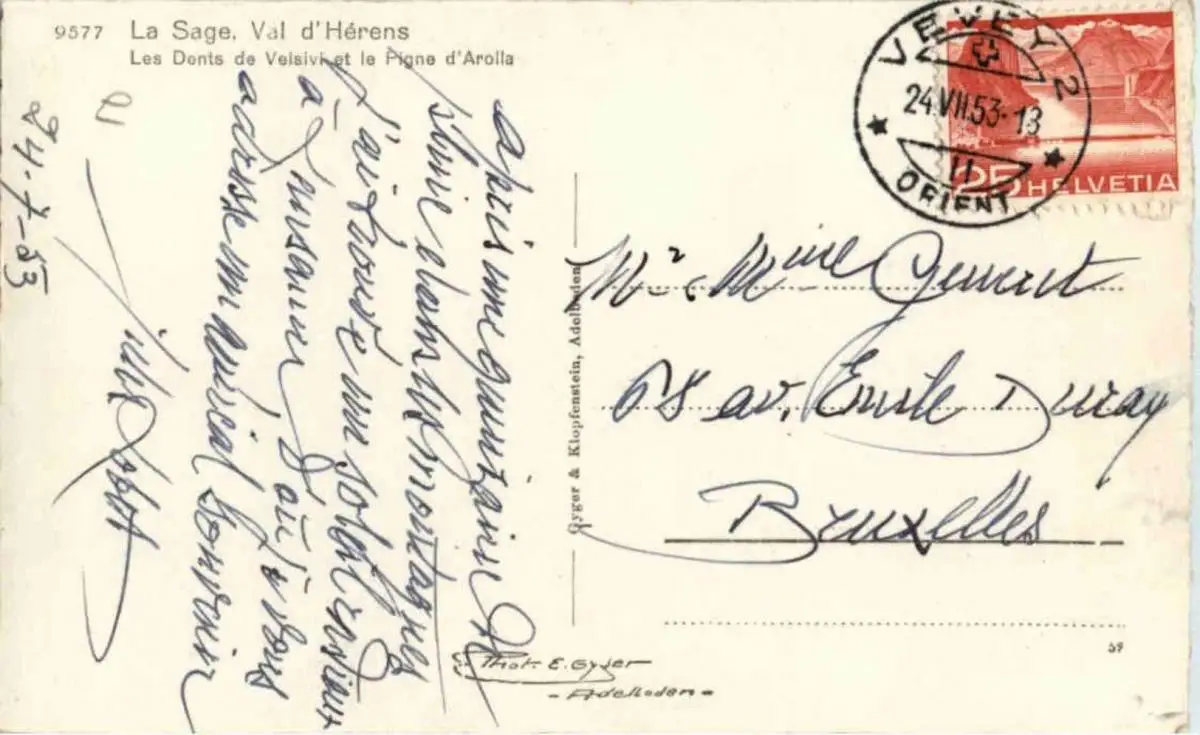 9577 La Sage, Val d'Hérens
Les Dents de Veisivi et le Pigne d'Arolla
après une quinzaine de
pluie dans les montagnes
j'ai trouvé un soleil radieux
à Lausanne d'où je vous
adresse mon amical souvenir
24-7-53
Gyger & Klopfenstein, Adelboden
VEVEY 2
24.VII.53-13
11
ORIENT
25 HELVETIA
Mr & Mme
68 av. Emile Duray
Bruxelles
59
Phot. E. Gyger
- Adelboden -